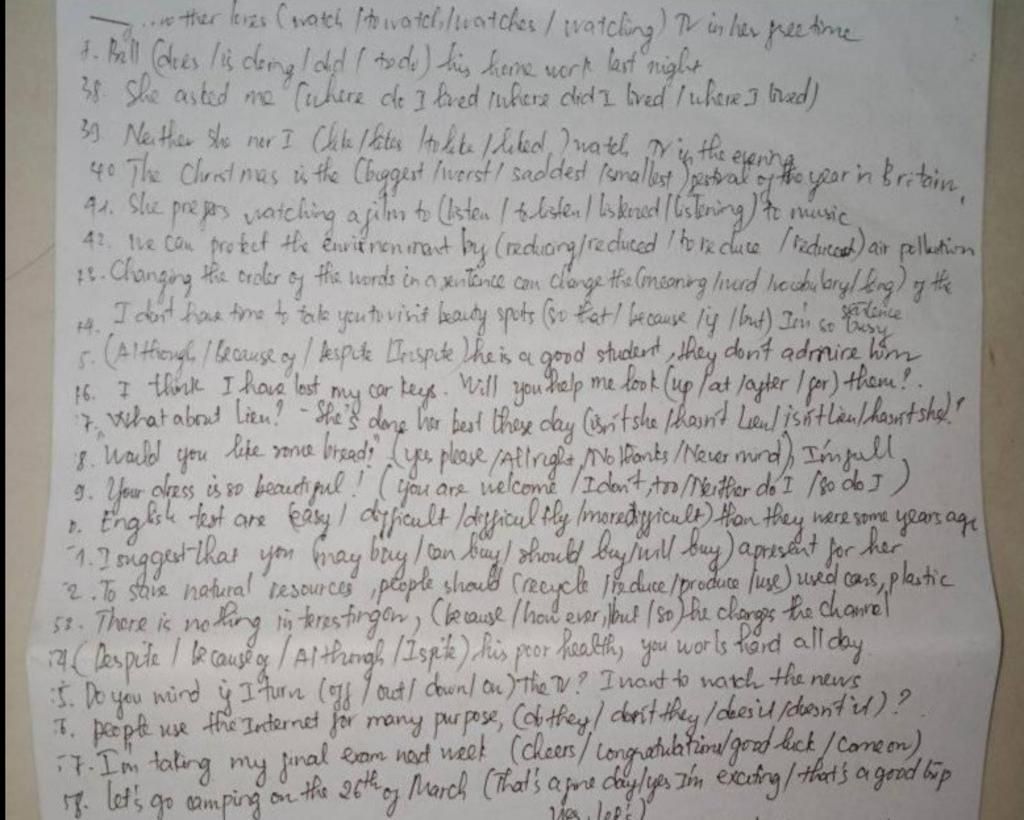 ...other loves (watch / to watch / watches / watching) TV in her free time
7. Bill (does / is doing / did / to do) his home work last night
38. She asked me (where do I lived / where did I lived / where I lived)
39 Neither she nor I (like / likes / to like / liked) watch TV in the evening
40 The Christmas is the (biggest / worst / saddest / smallest) festival of the year in Britain.
41. She prefers watching a film to (listen / to listen / listened / listening) to music
42. We can protect the by (reducing / reduced / to reduce / ) air pollution
43. Changing the order of the words in a sentence can change the (meaning / word / vocabulary / ) of the sentence
44. I don't have time to take you to visit beauty spots (so that / because / if / but) I'm so busy
5. (Although / Because of / Despite / Inspite) he is a good student, they don't admire him
46. I think I have lost my car keys. Will you help me look (up / at / after / for) them?.
7. What about Lien? - She's done her best these day (isn't she / hasn't Lien / isn't Lien / hasn't she)?
8. Would you like some bread? (yes please / All right / No thanks / Never mind), I'm full
9. Your dress is so beautiful! (you are welcome / I don't, too / Neither do I / so do I)
0. English test are (easy / difficult / difficultly / more difficult) than they were some years ago
1. I suggest that you (may buy / can buy / should buy / will buy) a present for her
2. To save natural resources, people should (recycle / reduce / produce / use) used cans, plastic
53. There is nothing interesting on, (because / how ever, / but / so) he changes the channel
54. (Despite / because of / Although / Ispite) his poor health, you works hard all day
5. Do you mind if I turn (off / out / down / on) the TV? I want to watch the news
6. people use the Internet for many purpose, (do they / don't they / does it / doesn't it)?
57. I'm taking my final exam next week (cheers / congratulations / good luck / come on)
58. let's go camping on the 26th of March (That's a fine day / yes I'm exciting / that's a good trip
Yes, let's)